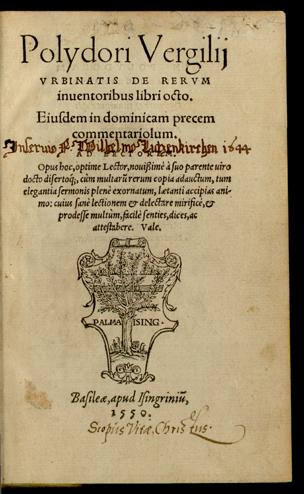 Polydori Vergilij
VRBINATIS DE RERVM
inuentoribus libri octo.
Eiusdem in dominicam precem
commentariolum.
Inseruio P. Wilhelmo 1644
AD LECTOREM.
Opus hoc, optime Lector, nouißimè à suo parente uiro
docto disertoq́;, cùm multarũ rerum copia adauctum, tum
elegantia sermonis plenè exornatum, lætanti accipias ani-
mo: cuius sanè lectionem & delectare mirificè, &
prodesse multùm, facilè senties, dices, ac
attestabere. Vale.
PALMA ISING.
Basileæ, apud Isingriniũ,
1550.
Scopus Vitæ, Christus.